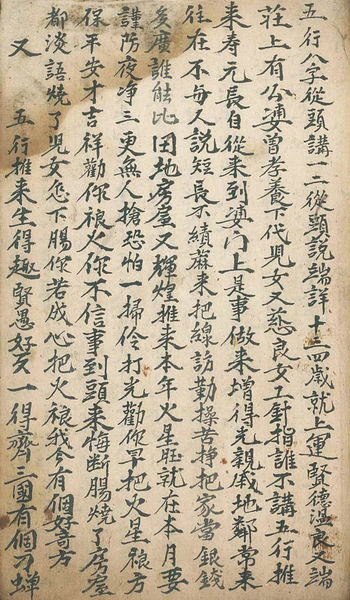 五行八字從頭講一二從頭說端詳十三四歲就上運賢德溫良又端
莊上有公婆曾孝養下代兒女又慈良女工針指誰不講五行推
来壽元長自從来到婆门上是事做来增得光親戚地鄰常来
往在不毎人説短長不績蔴来把線訪勤操苦挣把家當銀錢
多廣誰能比田地房屋又輝煌推来本年火星旺就在本月要
謹防夜净三更無人搶恐怕一掃伶打光勸你早把火星禳方
保平安才吉祥勸你禳火你不信事到頭来悔断腸燒了房屋
都淡語燒了児女怎下腸你若成心把火禳我今有個好方
又 五行推来生得趣賢愚好歹一得齊三國有個刁蟬